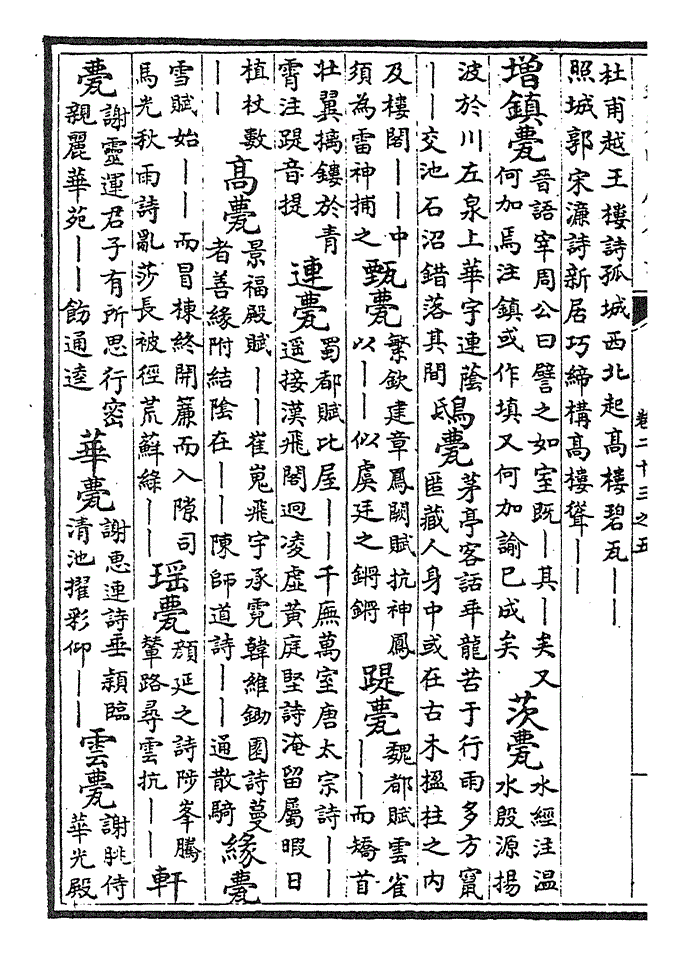 卷二十三之五
杜甫越王樓詩孤城西北起高樓碧瓦——
照城郭宋濂詩新居巧締構高樓聳——
增鎮甍
晉語宰周公曰譬之如室既—其—矣又
何加焉注鎮或作填又何加諭已成矣
茨甍
水經注温
水殷源揚
波於川左泉上華宇連蔭
——交池石沼錯落其間
鴟甍
茅亭客話乖龍苦于行雨多方竄
匿藏人身中或在古木楹柱之内
及樓閣——中
須為雷神捕之
甄甍
繁欽建章鳳闕賦抗神鳳
以——似虞廷之鏘鏘
踶甍
魏都賦雲雀
——而矯首
壯翼摛鏤於青
霄注踶音提
連甍
蜀都賦比屋——千廡萬室唐太宗詩——
遥接漢飛閣迥凌虛黄庭堅詩淹留屬暇日
植杖數
——
高甍
景福殿賦——崔嵬飛宇承霓韓維鋤園詩蔓
者善緣附結陰在——陳師道詩——通散騎
緣甍
雪賦始——而冒棟終開簾而入隙司
馬光秋雨詩亂莎長被徑荒蘚綠——
瑶甍
顔延之詩陟峯騰
輦路尋雲抗——
軒
甍
謝靈運君子有所思行密
親麗華苑——飭通逵
華甍
謝惠連詩垂穎臨
清池擢彩仰——
雲甍
謝朓侍
華光殿